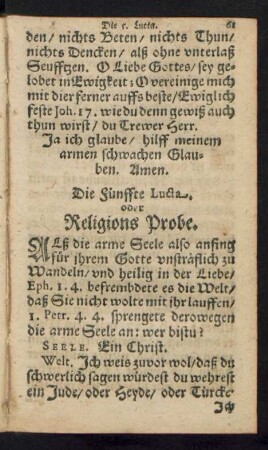 Die 5. Lucta. 61
den/ nichts Beten/ nichts Thun/
nichts Dencken/ alß ohne unterlaß
Seufftzen. O Liebe Gottes/ sey ge-
lobet in Ewigkeit: O vereinige mich
mit dir ferner auffs beste/ Ewiglich
feste Joh. 17. wie du denn gewiß auch
thun wirst/ du Trewer Herr.
Ja ich glaube/ hilff meinem
armen schwachen Glau-
ben. Amen.
Die Fünffte Lucta.
oder
Religions Probe.
ALß die arme Seele also anfing
für ihrem Gotte unsträflich zu
Wandeln/ und heilig in der Liebe/
Eph. 1. 4. befrembdete es die Welt/
daß Sie nicht wolte mit ihr lauffen/
1. Petr. 4. 4. sprengete derowegen
die arme Seele an: wer bistu?
SEELE. Ein Christ.
Welt. Ich weis zuvor wol/ daß du
schwerlich sagen würdest du wehrest
ein Jude/ oder Heyde/ oder Türcke.
Ich